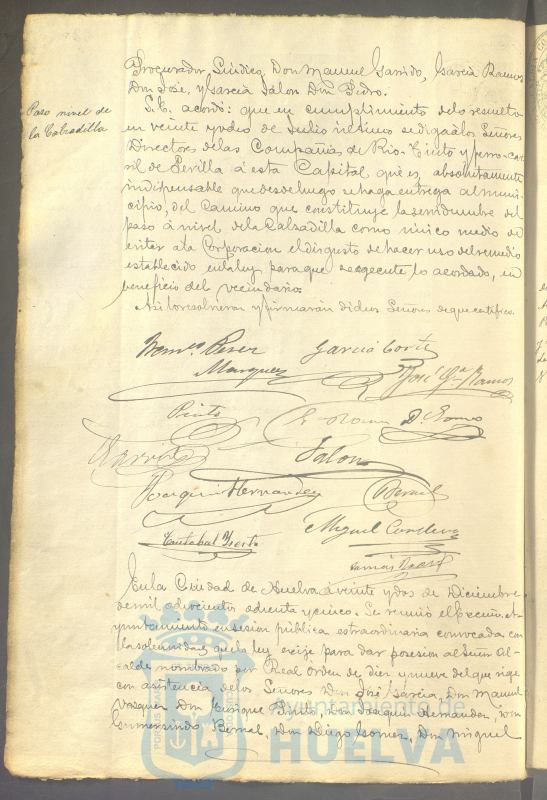 Procurador Síndico, Don Manuel Garrido, García Ramos
Don José, y García Jalon Don Pedro.
Paso nivel de
la Calzadilla
S.E. acordó: que en cumplimiento delo resuelto
en veinte y dos de Julio último se diga álos Señores
Directores delas Compañías de Rio-Tinto y ferro-car
ril de Sevilla á esta Capital que es, absolutamente
indispensable que desde luego se haga entrega al muni-
cipio, del Camino que constituye la servidumbre del
paso á nivel dela Calzadilla como único medio de
evitar ala Corporacion el disgusto de hacer uso del remedio
establecido enla ley para que se egecute lo acordado, en
beneficio del vecindario.
Así lo resolvieron y firmarán dichos Señores de que certifico.
Perez García Cortés
Marquez José Gª Ramos
Pinto D. Gomez
Garrido Jalon
Joaquin Hernandez Bernal
Cristobal Miguel
Enla Ciudad de Huelva á veinte y dos de Diciembre
de mil ochocientos ochenta y cinco. Se reunió el Excmo. A-
yuntamiento en sesion pública extraordinaria convocada con
la solemnidad que la ley exije para dar posesion al Señor Al-
calde nombrado por Real órden de diez y nueve del que rige
con asistencia delos Señores Don José García, Don Manuel
Vazquez Don Enrique Pinto, Don Joaquin Hernandez, Don
Gumersindo Bernal, Don Diego Gomez, Don Miguel
Ayuntamiento de
HUELVA